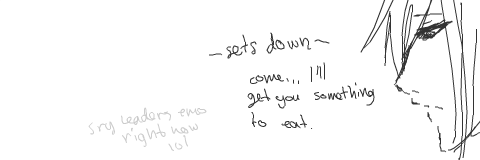 ~sets down~
come... I'll
get you something
to eat.
sry leaders emo
right now
lol